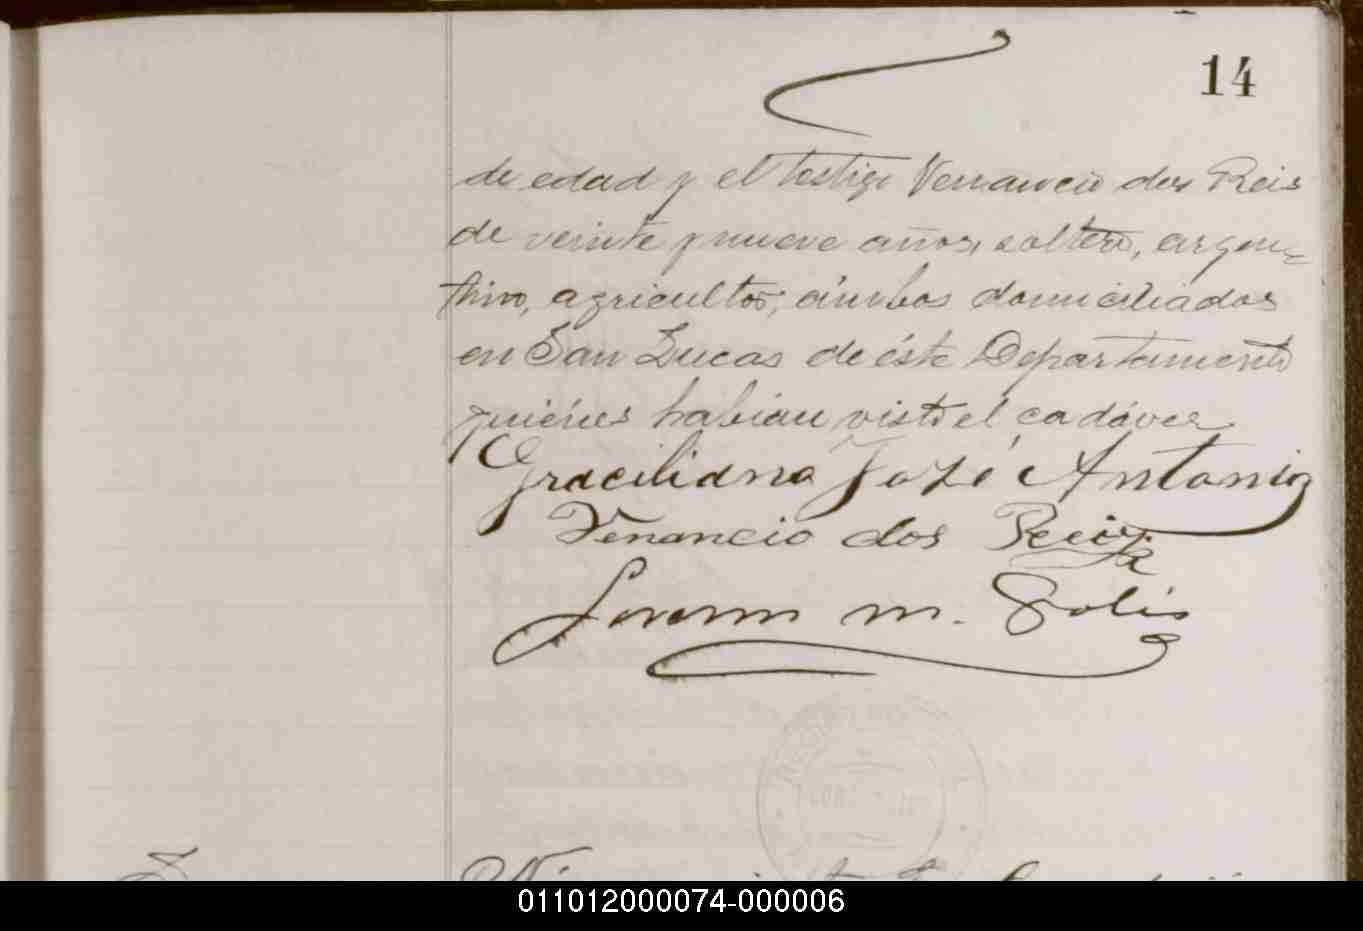 14
de edad y el testigo Venancio dos Reis
de veinte y nueve años, soltero, argen-
tino, agricultor; ámbos domiciliados
en San Lucas de éste Departamento
quiénes habían visto el cadáver
Graciliano José Antonio
Venancio dos Reis
M. Solis
011012000074-000006